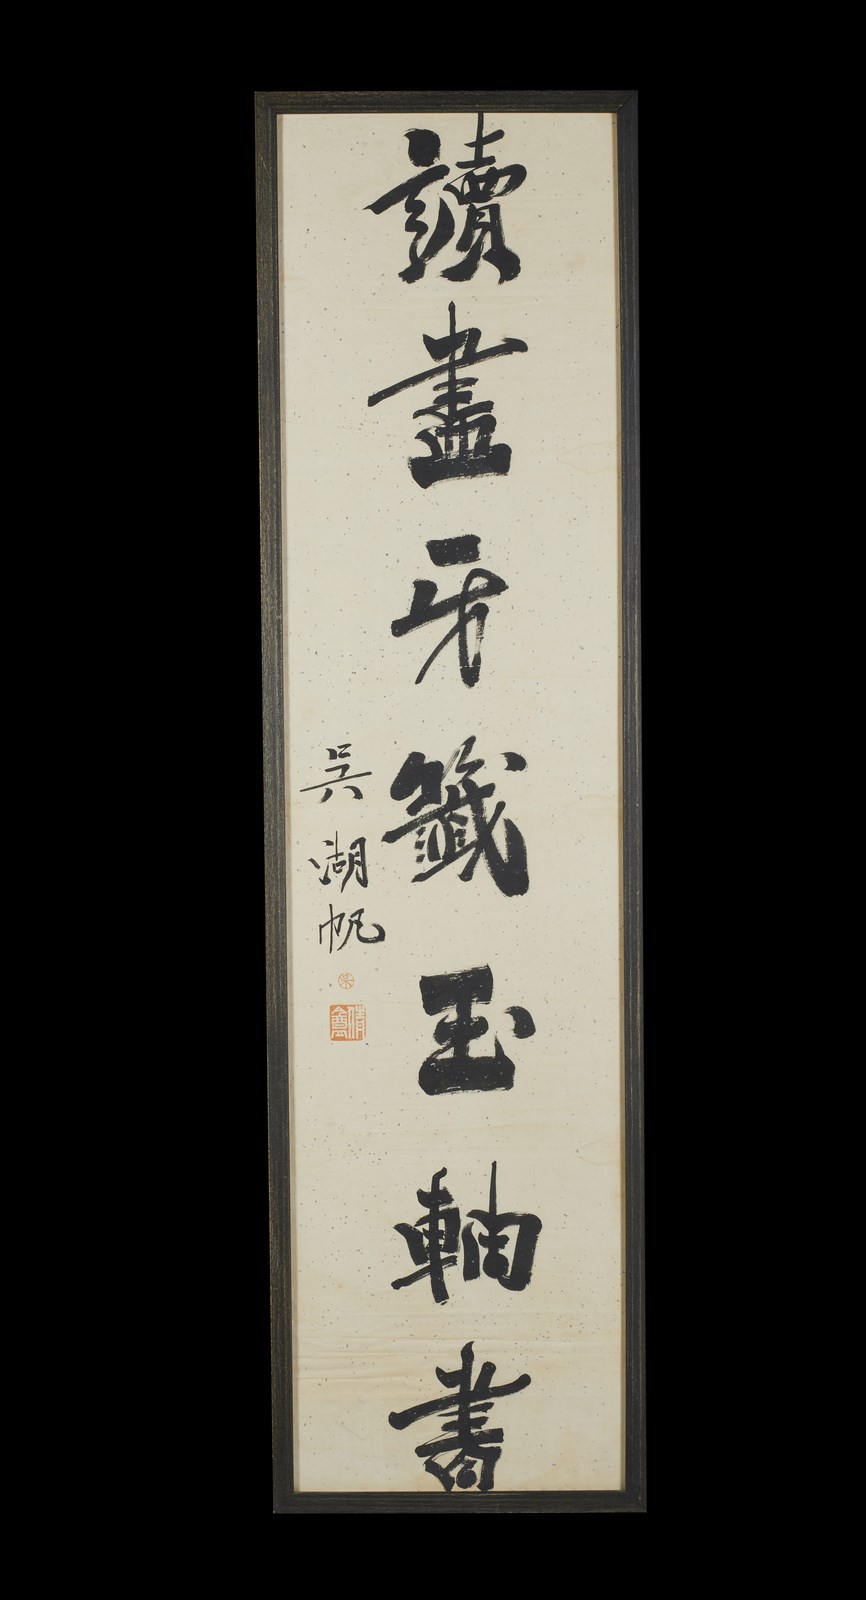 讀盡牙籤玉軸書
吳湖帆
倩盦